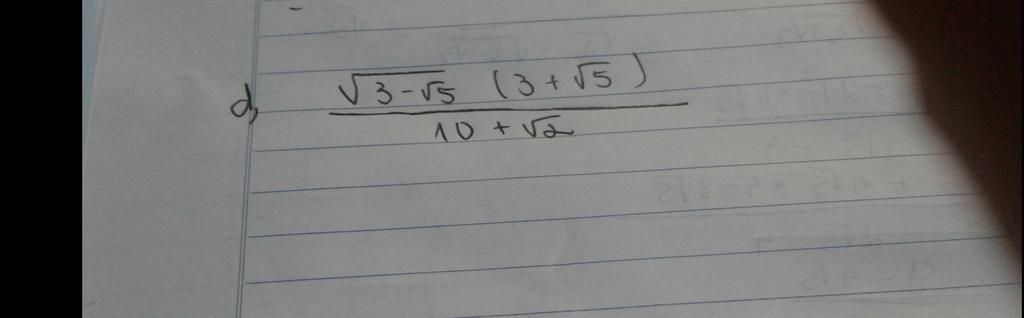 d, √(3-√5) (3+√5)
10+√2